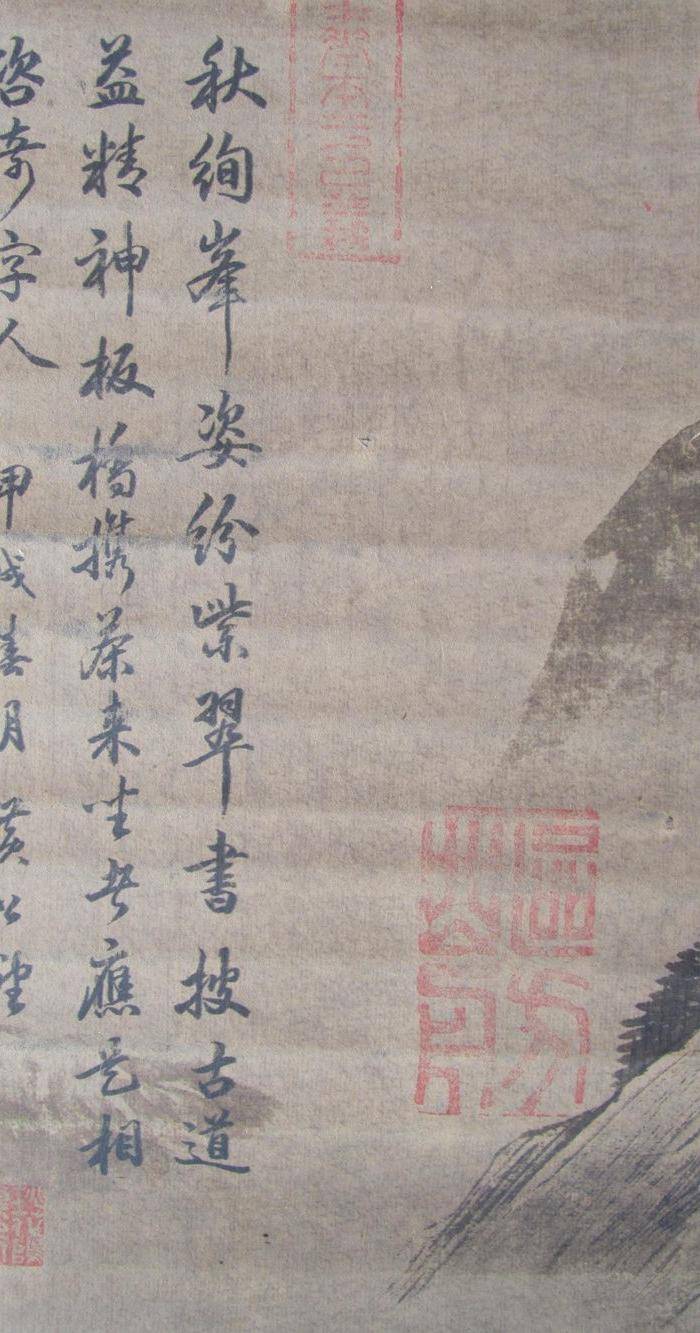 秋絢峯姿紛紫翠書披古道
益精神板橋攜茶来坐者應是相
咨奇字人 甲戌春月 黃公望